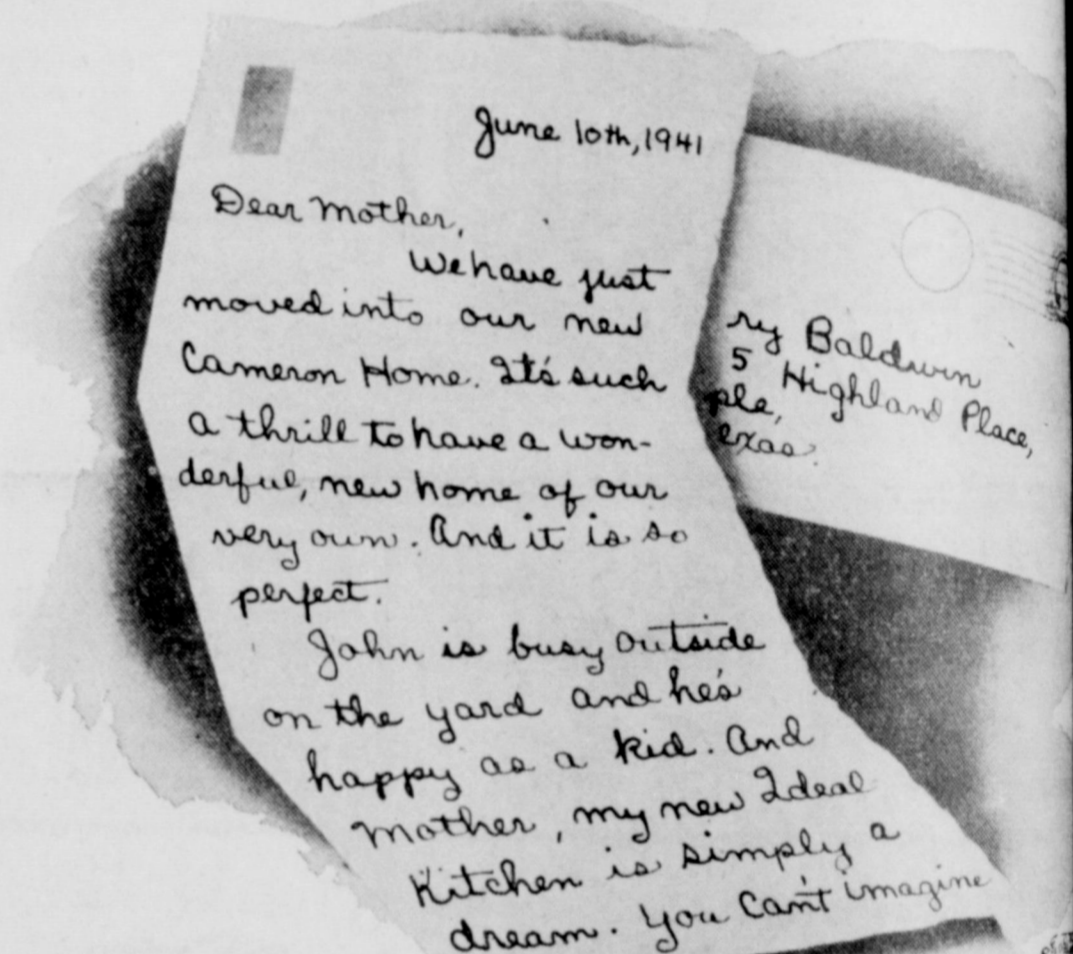 June 10th, 1941
Dear Mother,
We have just
moved into our new
Cameron Home. It's such
a thrill to have a won-
derful, new home of our
very own. And it is so
perfect.
John is busy outside
on the yard and he's
happy as a kid. And
Mother, my new Ideal
Kitchen is simply a
dream. You can't imagine
ry Baldwin
5 Highland Place,
ple,
exas.